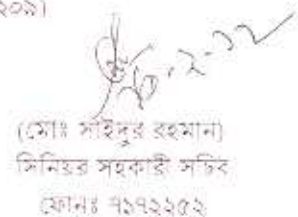 ২০৯১
২০.২.১২
(মোঃ সাইদুর রহমান)
সিনিয়র সহকারী সচিব
ফোনঃ ৭১৭২২৫২